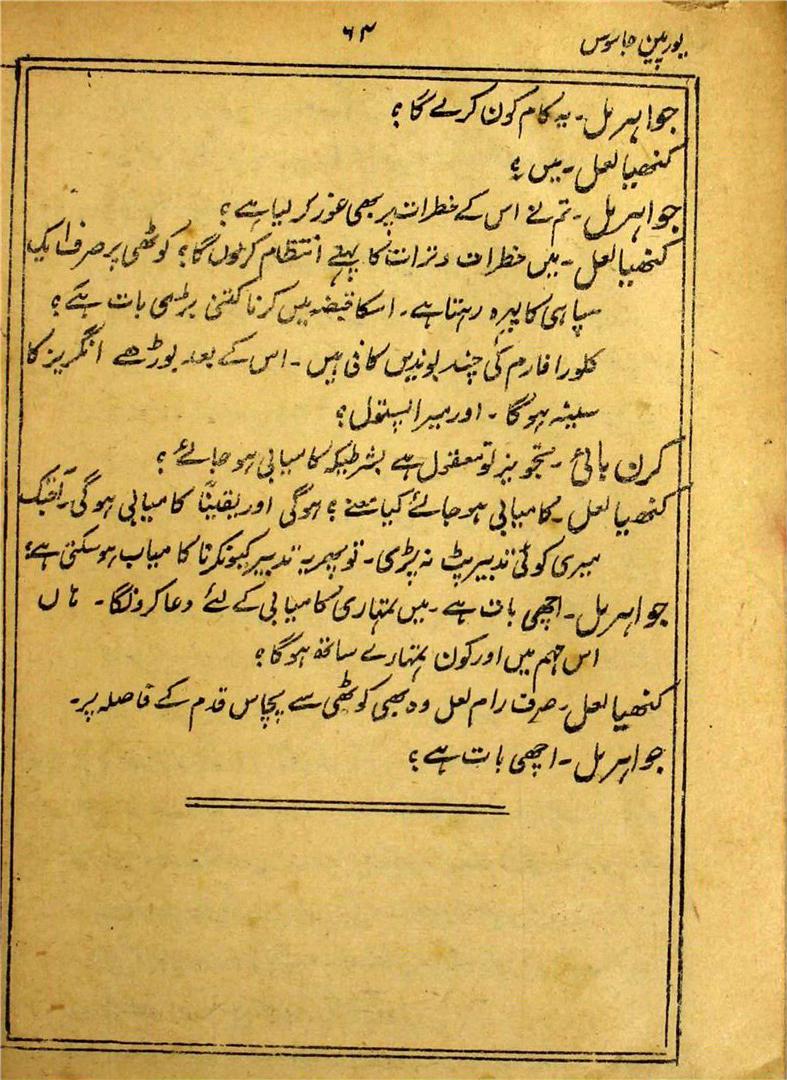 یورپین جاسوس
۶۳
جواہر مل۔ یہ کام کون کرے گا؟
کنھیا لعل۔ میں؟
جواہر مل۔ تم نے اس کے خطرات پر بھی غور کر لیا ہے؟
کنھیا لعل۔ میں خطرات وترات کا پہلے انتظام کرلوں گا؟ کوٹھی پر صرف ایک
سپاہی کا پہرہ رہتا ہے۔ اسکا قبضہ میں کرنا کتنی بڑی بات ہے؟
کلورا فارم کی چند بوندیں کافی ہیں۔ اس کے بعد بوڑھے انگریز کا
سینہ ہوگا۔ اور میرا پستول؟
کرن بائی۔ تجویز تو معقول ہے بشرطیکہ کامیابی ہو جائے؟
کنھیا لعل۔ کامیابی ہو جائے کیا معنے؟ ہوگی اور یقیناً کامیابی ہوگی۔ آجتک
میری کوئی تدبیر پٹ نہ پڑی۔ تو پھر یہ تدبیر کیونکر ناکامیاب ہو سکتی ہے؟
جواہر مل۔ اچھی بات ہے۔ میں تمہاری کامیابی کے لئے دعا کرونگا۔ ہاں
اس مہم میں اور کون تمہارے ساتھ ہوگا؟
کنھیا لعل۔ صرف رام لعل وہ بھی کوٹھی سے پچاس قدم کے فاصلہ پر۔
جواہر مل۔ اچھی بات ہے؟